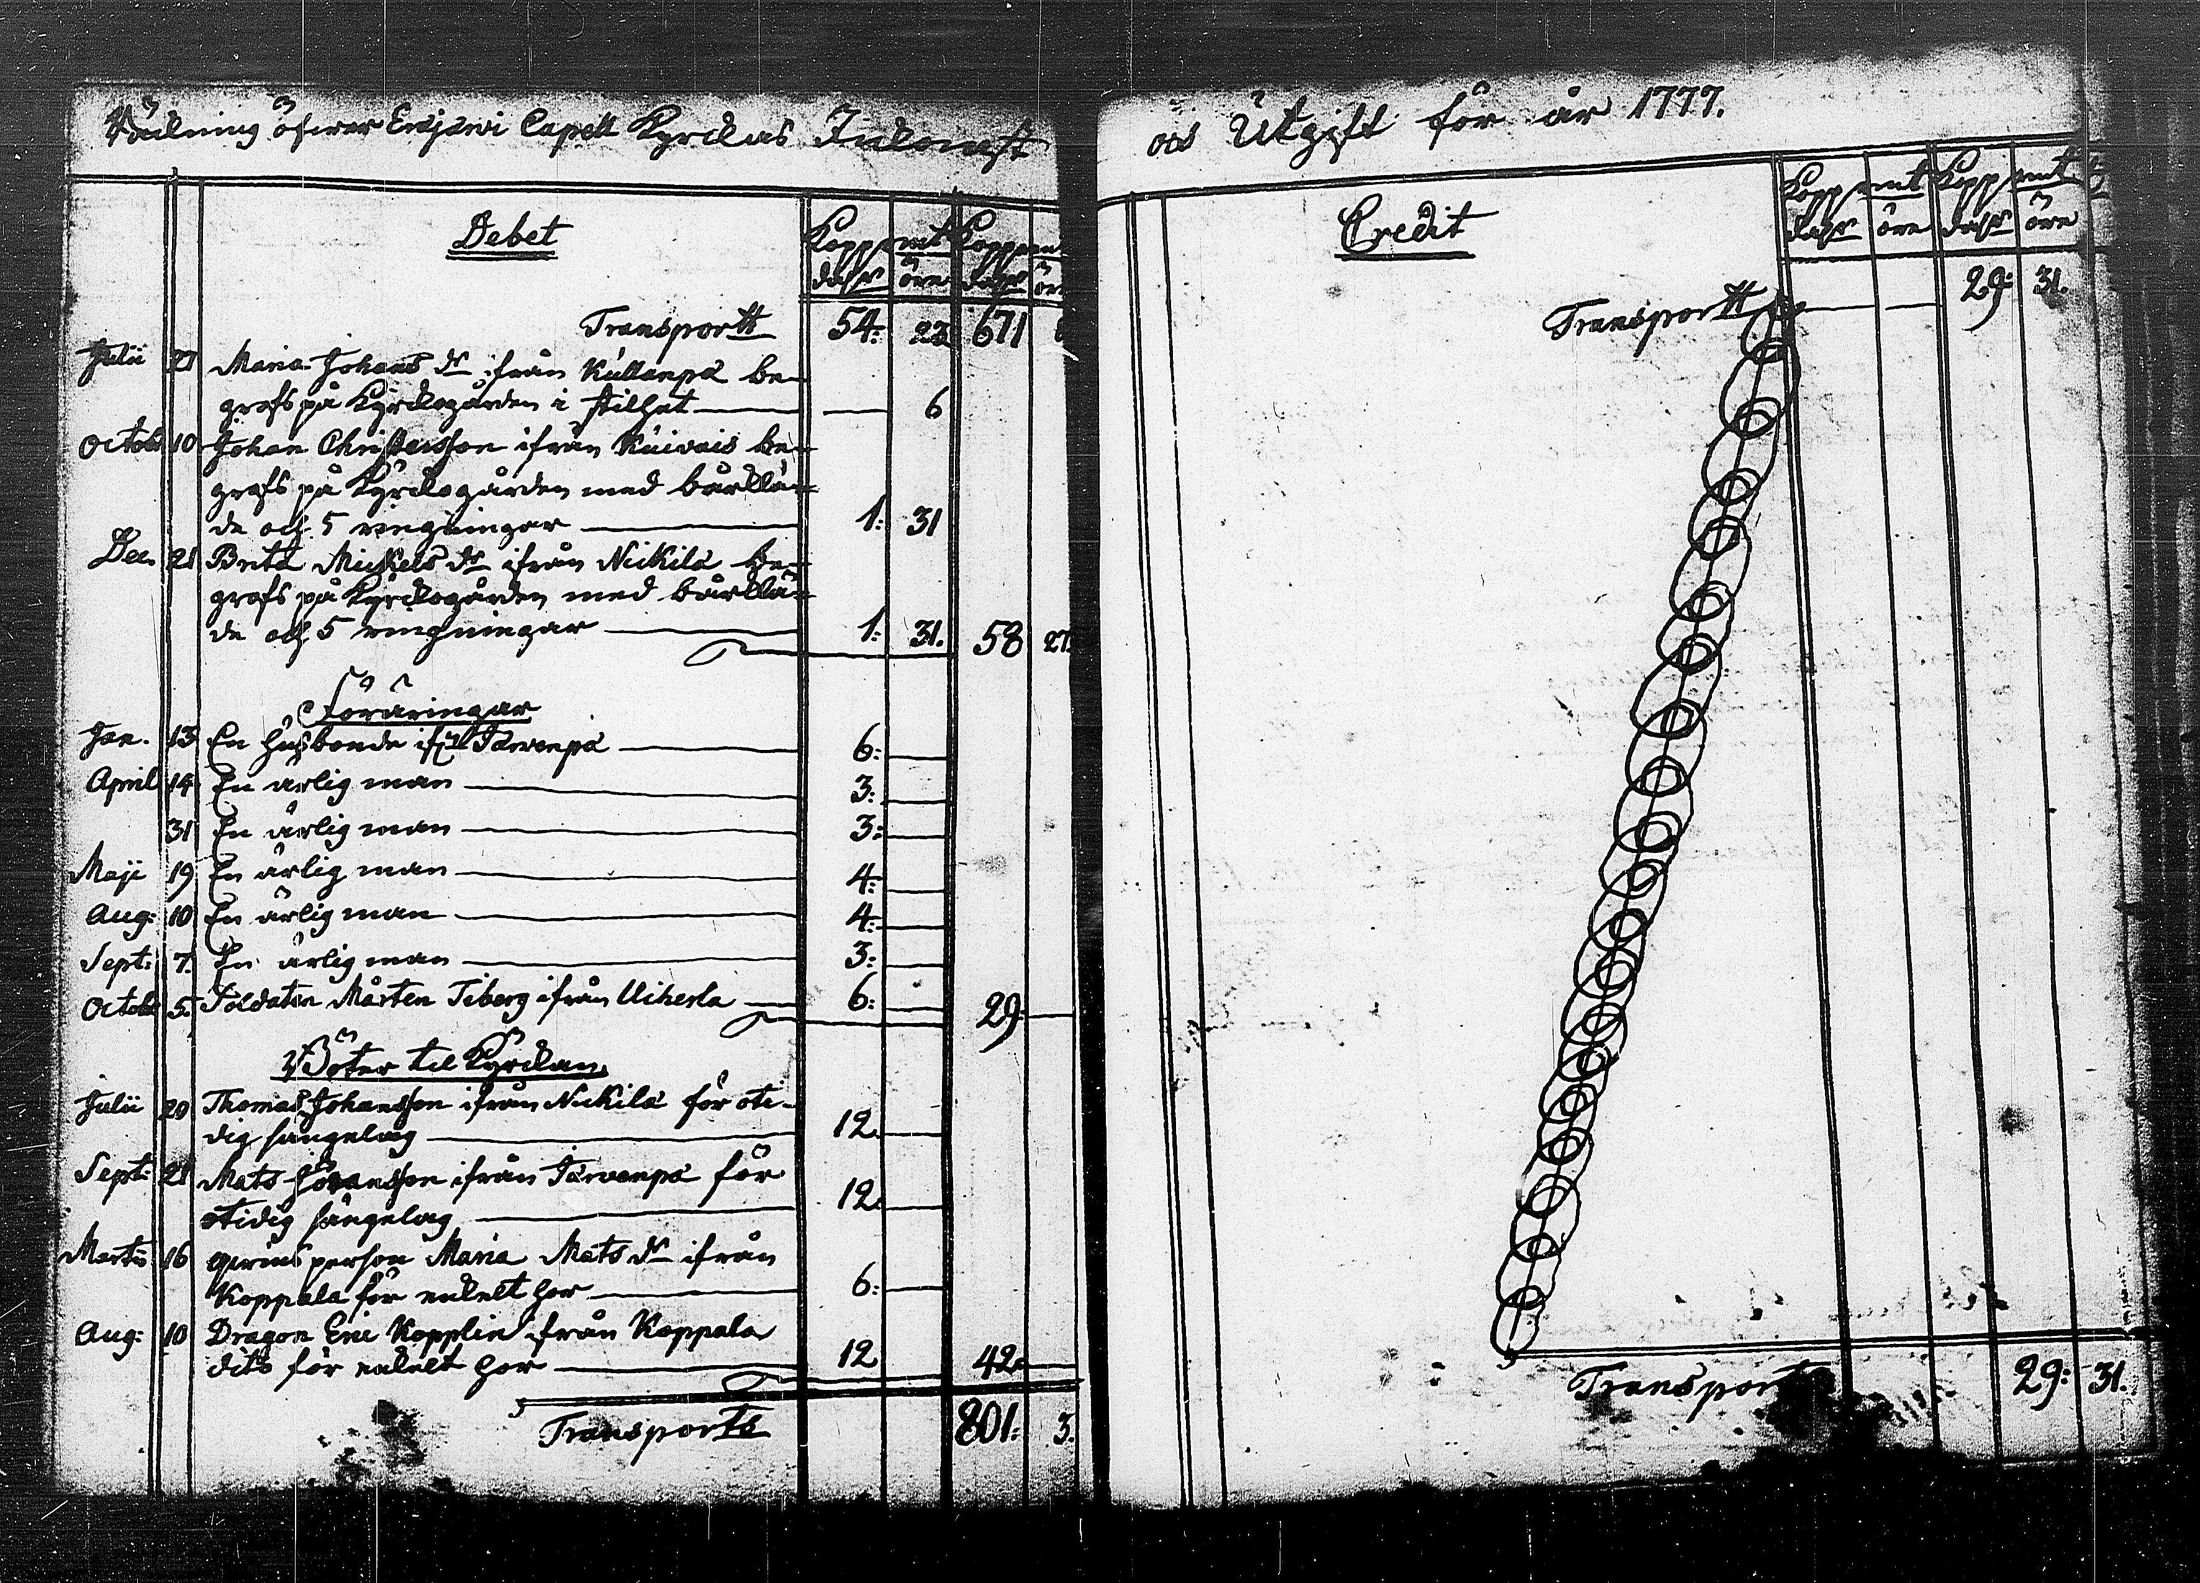 Räkning öfwer Enäjerwi Capell Kyrckas Inkomst
Debet
Koppmt Koppmt
dahlr öre dahlr ör
Transportt 54: 23 671
Julii 27 Maria Johans dr ifrån Kullanpä be-
grofs på Kyrckogården i stilhet — — 6
Octob: 10 Johan Christersson ifrån be-
grofs på Kyrckogården med bårklä-
de och 5 ringningar — 1: 31
Dec. 21 Brita Michels dr ifrån Nickilä be-
grofs på Kyrckogården med bårklä-
de och 5 ringningar — 1: 31. 58 27.
Föräringar
Jan. 13 En husbonde ifrn Tarvenpä — 6: —
April 14 En ärlig man — 3: —
31 En ärlig man — 3: —
Maji 19 En ärlig man — 4: —
Aug: 10 En ärlig man — 4: —
Sept: 7. En ärlig man — 3: —
Octob: 5. Soldaten Mårten Tiberg ifrån — 6: — 29: —
Böter til Kyrckan
Julii 20 Thomas Johansson ifrån Nickilä för oti-
dig sängelag — 12. —
Sept: 21 Mats Johansson ifrån Tarvenpä för
otidig sängelag — 12. —
Martii 16 qwins person Maria Mats dr ifrån
Koppala för enkelt hor — 6: —
Aug: 10 Dragon Eric Kopplin ifrån Koppala
dito för enkelt hor — 12 42: —
Transporte 801: 3.
och Utgift för år 1777.
Credit
Koppmt Koppmt
dahlr öre dahlr öre
Transportt — 29: 31.
Transport 29: 31.